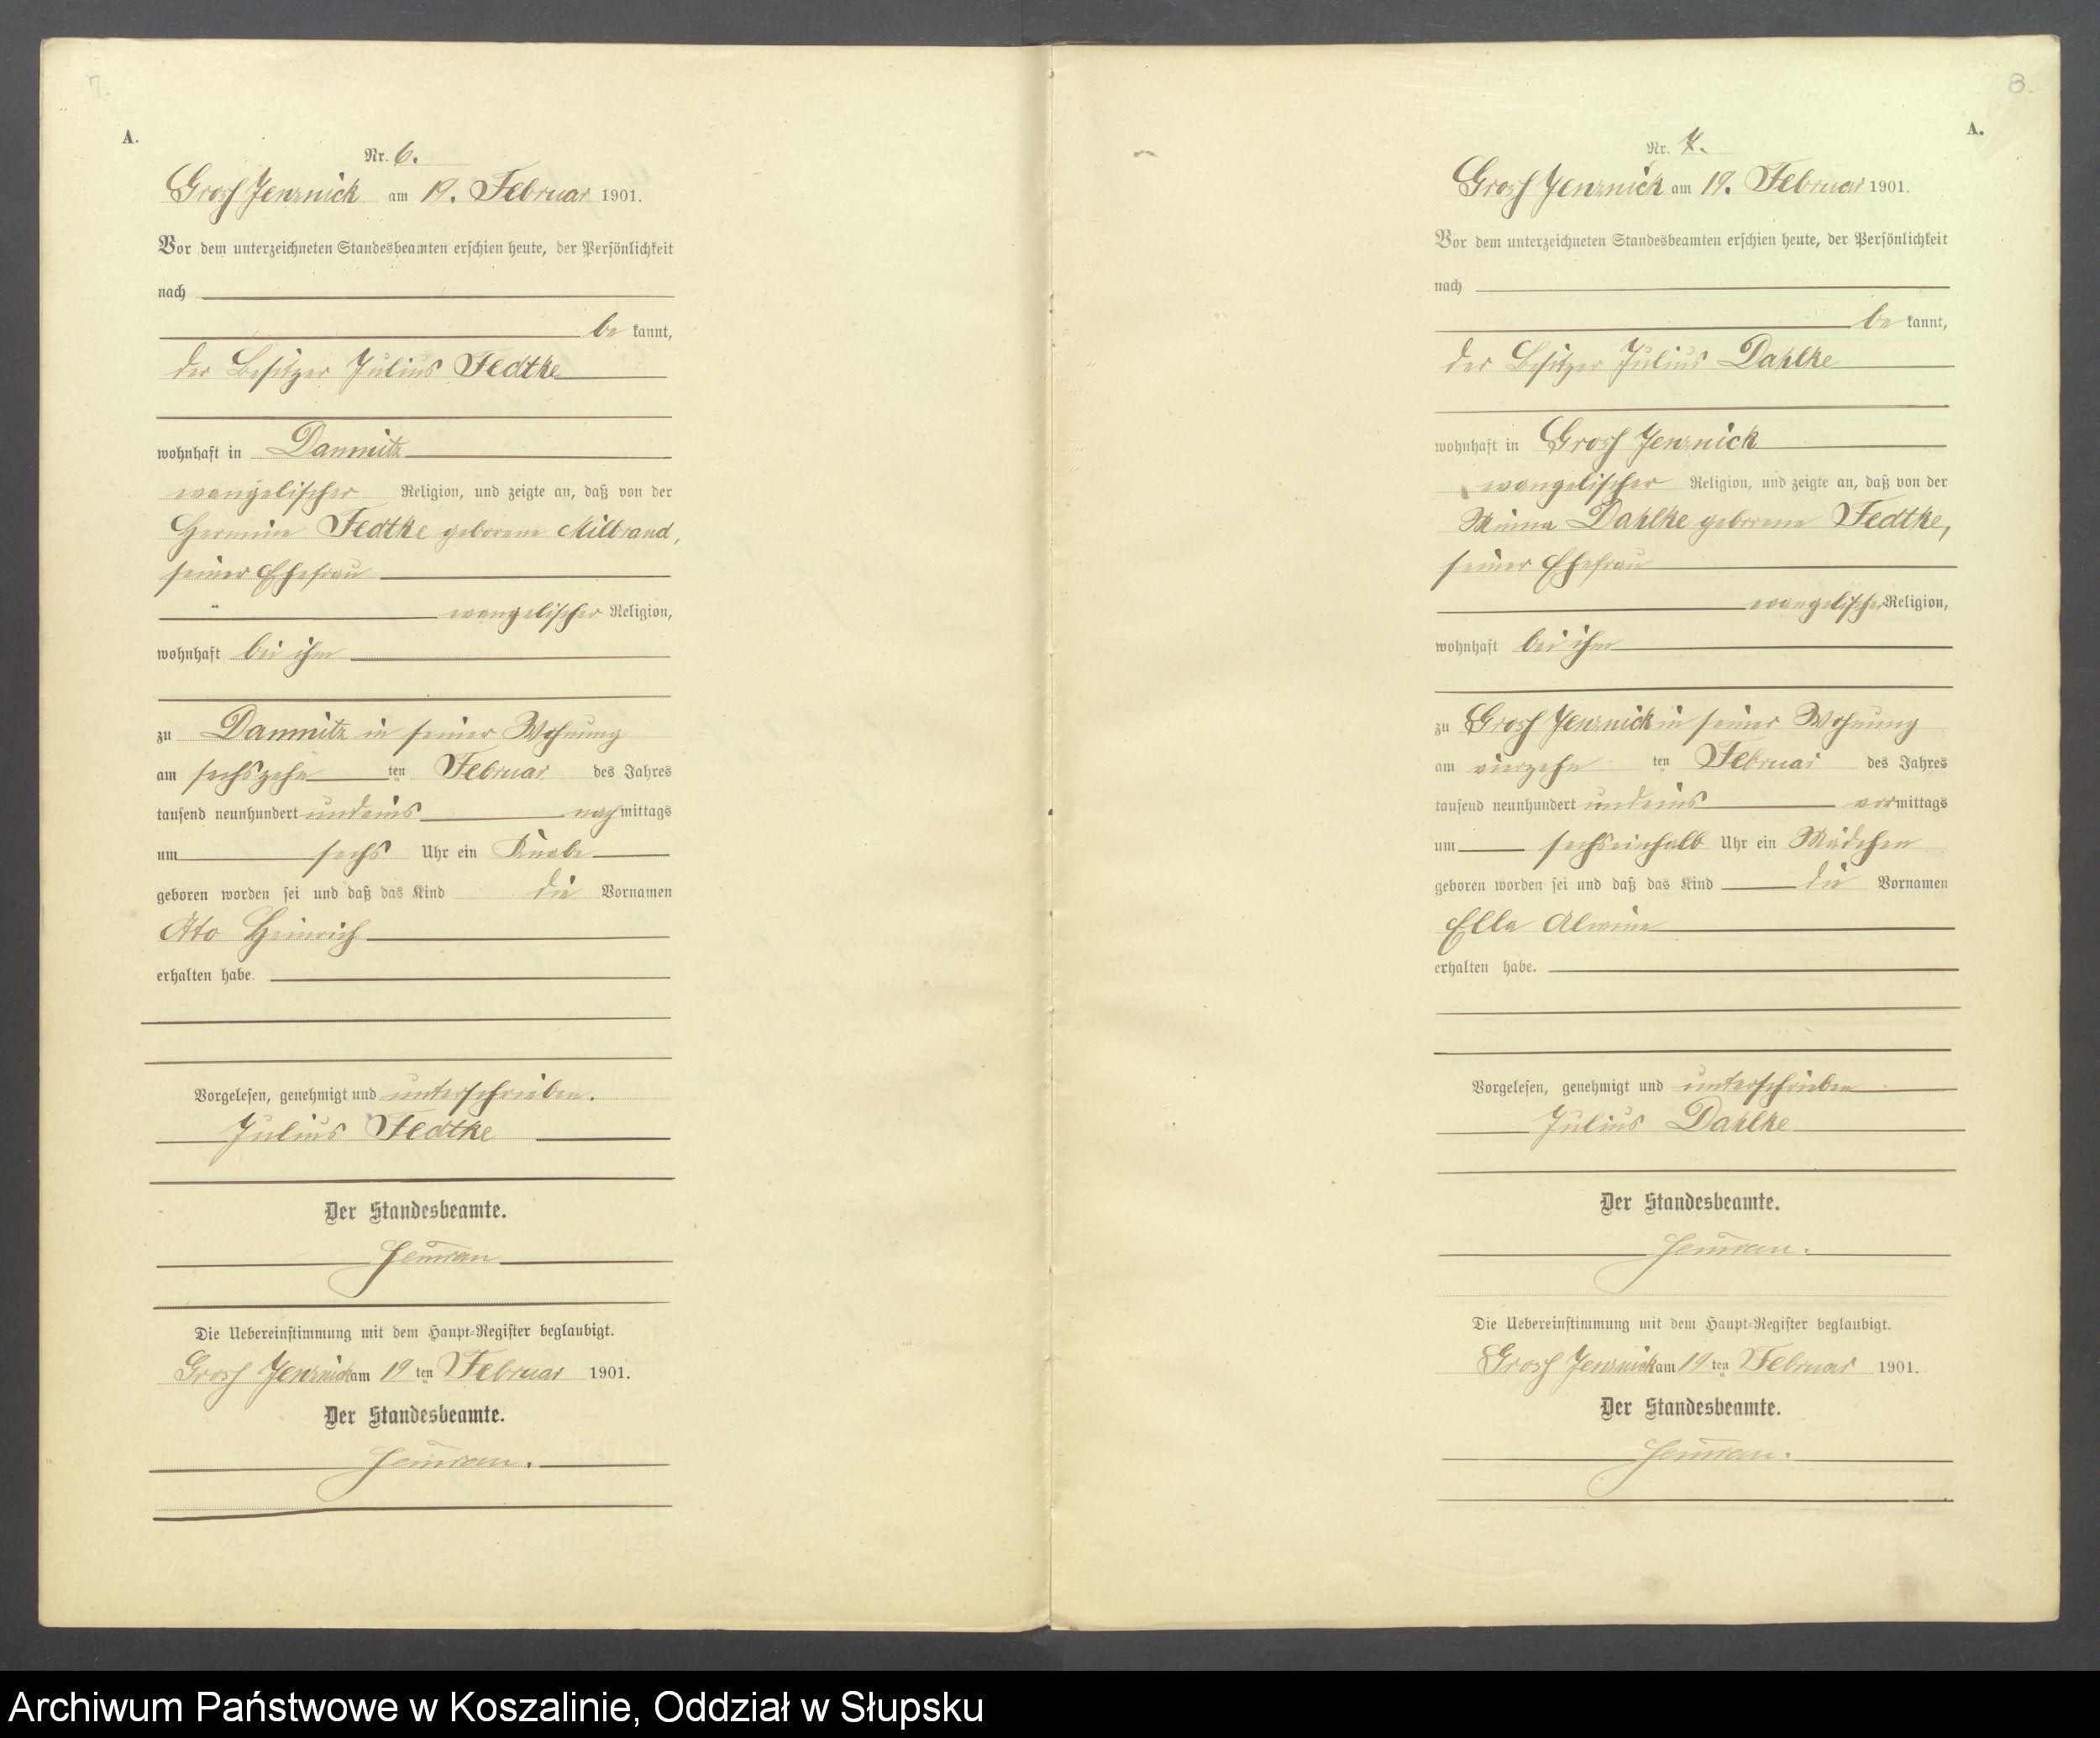 7.
A.
Nr. 6.
Groß Jenznick am 19. Februar 1901.
Vor dem unterzeichneten Standesbeamten erschien heute, der Persönlichkeit
nach
be kannt,
der Besitzer Julius Fedtke
wohnhaft in Damnitz
evangelischer Religion, und zeigte an, daß von der
Hermine Fedtke geborene Milbrand,
seiner Ehefrau
evangelischer Religion,
wohnhaft bei ihm
zu Damnitz in seiner Wohnung
am sechszehn ten Februar des Jahres
tausend neunhundert undeins nachmittags
um sechs Uhr ein Knabe
geboren worden sei und daß das Kind die Vornamen
Otto Heinrich
erhalten habe.
Vorgelesen, genehmigt und unterschrieben.
Julius Fedtke
Der Standesbeamte.
Die Uebereinstimmung mit dem Haupt-Register beglaubigt.
Groß Jenznick am 19 ten Februar 1901.
Der Standesbeamte.
8.
A.
Nr. 7.
Groß Jenznick am 19. Februar 1901.
Vor dem unterzeichneten Standesbeamten erschien heute, der Persönlichkeit
nach
be kannt,
der Besitzer Julius Dahlke
wohnhaft in Groß Jenznick
evangelischer Religion, und zeigte an, daß von der
Minna Dahlke geborene Fedtke,
seiner Ehefrau
evangelischer Religion,
wohnhaft bei ihm
zu Groß Jenznick in seiner Wohnung
am vierzehn ten Februar des Jahres
tausend neunhundert undeins vormittags
um sechseinhalb Uhr ein Mädchen
geboren worden sei und daß das Kind die Vornamen
Ella Alwine
erhalten habe.
Vorgelesen, genehmigt und unterschrieben
Julius Dahlke
Der Standesbeamte.
Die Uebereinstimmung mit dem Haupt-Register beglaubigt.
Groß Jenznick am 19 ten Februar 1901.
Der Standesbeamte.
Archiwum Państwowe w Koszalinie, Oddział w Słupsku